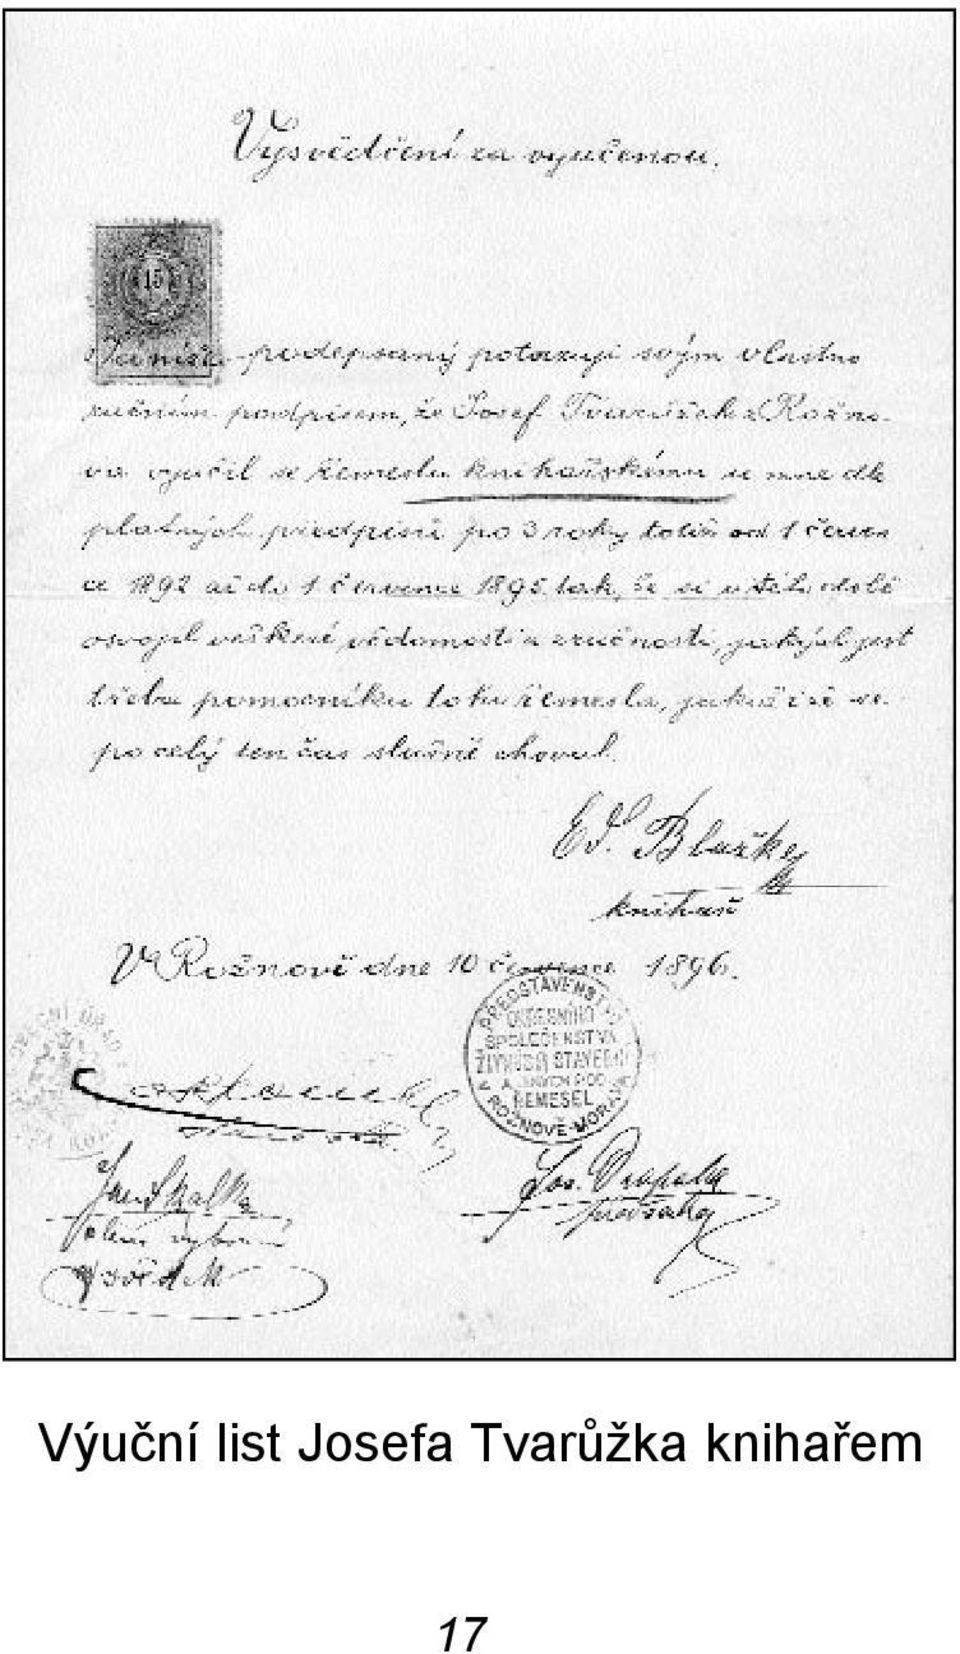 Vysvědčení za vyučenou.
15
Já níže podepsaný potvrzuji svým vlastno
ručním podpisem, že Josef Tvarůžek z Rožno-
va vyučil se řemeslu knihařskému u mne dle
platných předpisů po 3 roky totiž od 1 červen
ce 1892 až do 1 července 1895 tak, že si v této době
osvojil veškeré vědomosti a zručnosti, jakých jest
třeba pomocníku toho řemesla, jakož i že se
po celý ten čas slušně choval.
Ed. Blažky
knihař
V Rožnově dne 10 července 1896.
PŘEDSTAVENSTVO
OKRESNÍHO
SPOLEČENSTVA
ŽIVNOSTÍ STAVEB.
A JINÝCH POD.
ŘEMESEL
V ROŽNOVĚ-MORAVA
starosta.
Jan Skalka
Jos. Dropala
předseda
člen výboru
svědek
Výuční list Josefa Tvarůžka knihařem
17